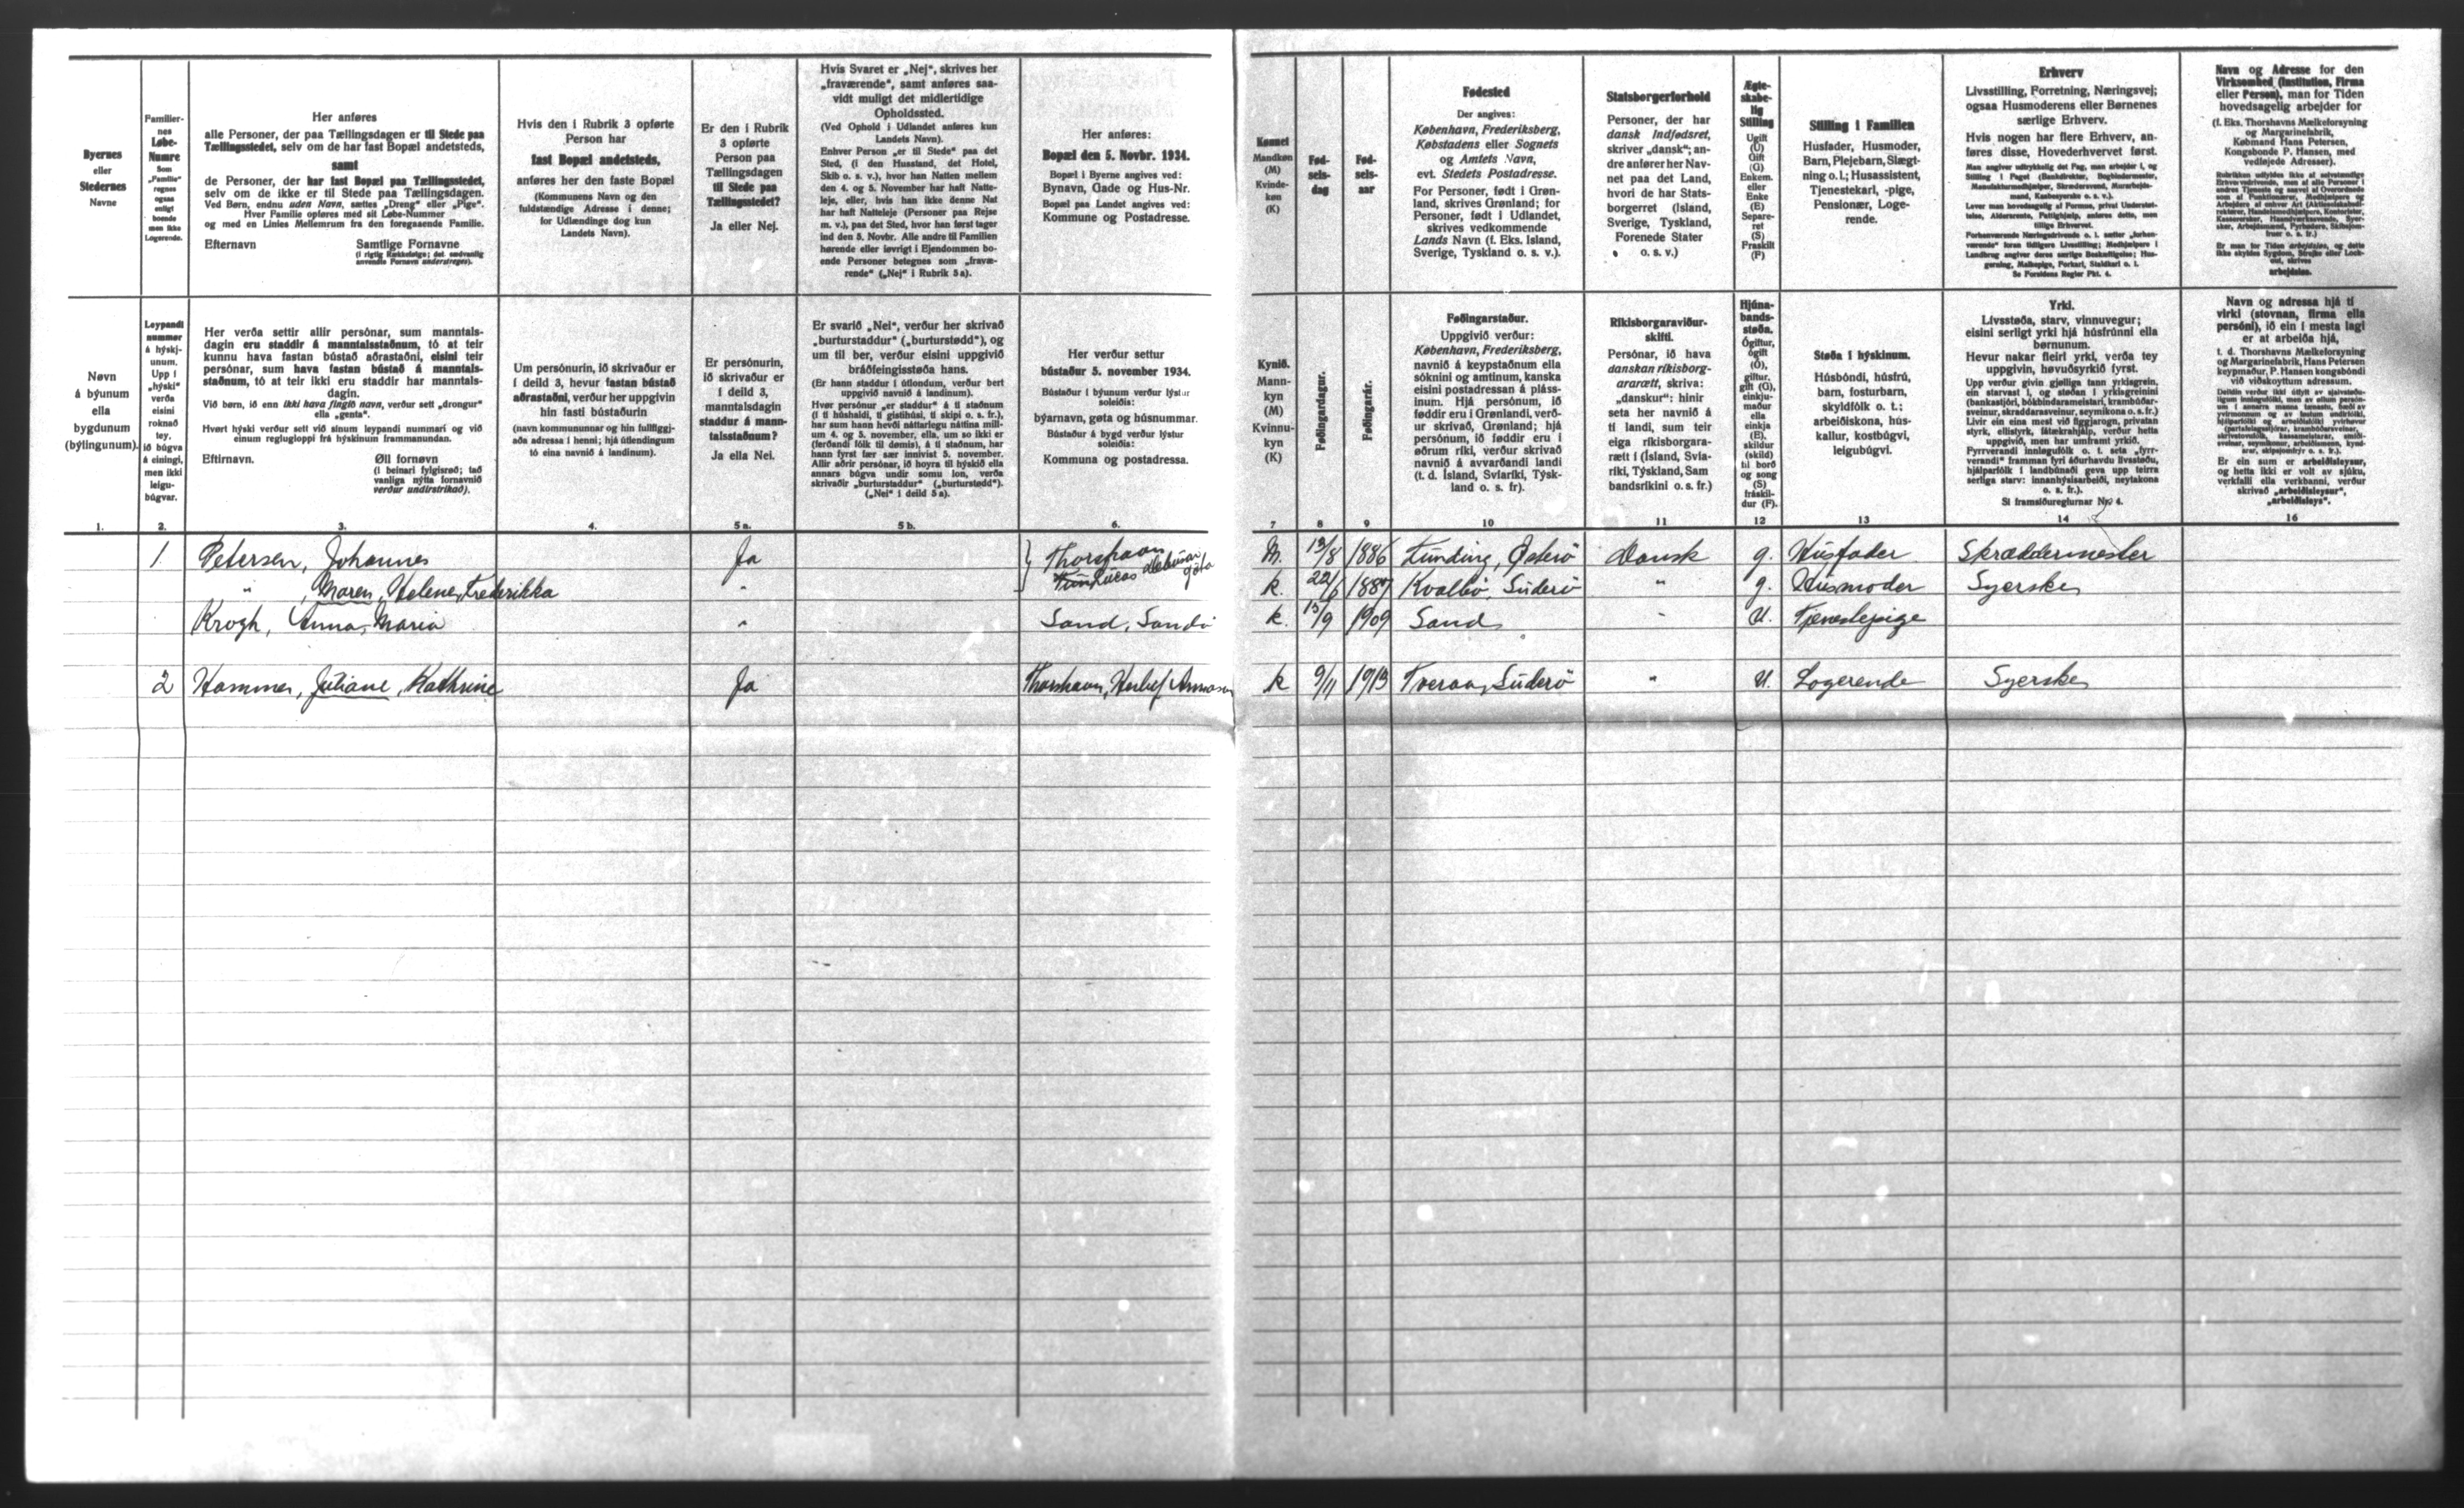 Byernes
eller
Stedernes
Navne
Familier-
nes
Løbe-
Numre
Som
„Familie“
regnes
ogsaa
enligt
boende
men ikke
Logerende.
Her anføres
alle Personer, der paa Tællingsdagen er til Stede paa
Tællingsstedet, selv om de har fast Bopæl andetsteds,
samt
de Personer, der har fast Bopæl paa Tællingsstedet,
selv om de ikke er til Stede paa Tællingsdagen.
Ved Børn, endnu uden Navn, sættes „Dreng“ eller „Pige“.
Hver Familie opføres med sit Løbe-Nummer
og med en Linies Mellemrum fra den foregaaende Familie.
Efternavn Samtlige Fornavne
(i rigtig Rækkefølge; det sædvanlig
anvendte Fornavn understreges).
Hvis den i Rubrik 3 opførte
Person har
fast Bopæl andetsteds,
anføres her den faste Bopæl
(Kommunens Navn og den
fuldstændige Adresse i denne;
for Udlændinge dog kun
Landets Navn).
Er den i Rubrik
3 opførte
Person paa
Tællingsdagen
til Stede paa
Tællingsstedet?
Ja eller Nej.
Hvis Svaret er „Nej“, skrives her
„fraværende“, samt anføres saa-
vidt muligt det midlertidige
Opholdssted.
(Ved Ophold i Udlandet anføres kun
Landets Navn).
Enhver Person „er til Stede“ paa det
Sted, (i den Husstand, det Hotel,
Skib o. s. v.), hvor han Natten mellem
den 4. og 5. November har haft Natte-
leje, eller, hvis han ikke denne Nat
har haft Natteleje (Personer paa Rejse
m. v.), paa det Sted, hvor han først tager
ind den 5. Novbr. Alle andre til Familien
hørende eller iøvrigt i Ejendommen bo-
ende Personer betegnes som „fravæ-
rende“ („Nej“ i Rubrik 5 a).
Her anføres:
Bopæl den 5. Novbr. 1934.
Bopæl i Byerne angives ved:
Bynavn, Gade og Hus-Nr.
Bopæl paa Landet angives ved:
Kommune og Postadresse.
Kønnet
Mandkøn
(M)
Kvinde-
køn
(K)
Fød-
sels-
dag
Fød-
sels-
aar
Fødested
Der angives:
København, Frederiksberg,
Købstadens eller Sognets
og Amtets Navn,
evt. Stedets Postadresse.
For Personer, født i Grøn-
land, skrives Grønland; for
Personer, født i Udlandet,
skrives vedkommende
Lands Navn (f. Eks. Island,
Sverige, Tyskland o. s. v.).
Statsborgerforhold
Personer, der har
dansk Indfødsret,
skriver „dansk“; an-
dre anfører her Nav-
net paa det Land,
hvori de har Stats-
borgerret (Island,
Sverige, Tyskland,
Forenede Stater
o. s. v.)
Ægte-
skabe-
lig
Stilling
Ugift
(U)
Gift
(G)
Enkem.
eller
Enke
(E)
Separe-
ret
(S)
Fraskilt
(F)
Stilling i Familien
Husfader, Husmoder,
Barn, Plejebarn, Slægt-
ning o. l.; Husassistent,
Tjenestekarl, -pige,
Pensionær, Loge-
rende.
Erhverv
Livsstilling, Forretning, Næringsvej;
ogsaa Husmoderens eller Børnenes
særlige Erhverv.
Hvis nogen har flere Erhverv, an-
føres disse, Hovederhvervet først.
Se Forsidens Regler Pkt. 4.
Navn og Adresse for den
Virksomhed (Institution, Firma
eller Person), man for Tiden
hovedsagelig arbejder for
(f. Eks. Thorshavns Mælkeforsyning
og Margarinefabrik,
Købmand Hans Petersen,
Kongsbonde P. Hansen, med
vedføjede Adresser).
arbejdsløs.
Nøvn
á býunum
ella
bygdunum
(býlingunum).
Leypandi
nummør
á hýskj-
unum.
Upp í
„hýski“
verða
eisini
roknað
tey,
ið búgva
á einingi,
men ikki
leigu-
búgvar.
Her verða settir allir persónar, sum manntals-
dagin eru staddir á manntalsstaðnum, tó at teir
kunnu hava fastan bústað aðrastaðni, eisini teir
persónar, sum hava fastan bústað á manntals-
staðnum, tó at teir ikki eru staddir har manntals-
dagin.
Við børn, ið enn ikki hava fingið navn, verður sett „drongur“
ella „genta“.
Hvørt hýski verður sett við sínum leypandi nummari og við
einum reglugloppi frá hýskinum frammanundan.
Eftirnavn. Øll fornøvn
(í beinari fylgisrøð; tað
vanliga nýtta fornavnið
verður undirstrikað).
Um persónurin, ið skrivaður er
í deild 3, hevur fastan bústað
aðrastaðni, verður her uppgivin
hin fasti bústaðurin
(navn kommununnar og hin fullfiggj-
aða adressa í henni; hjá útlendingum
tó eina navnið á landinum).
Er persónurin,
ið skrivaður er
í deild 3,
manntalsdagin
staddur á mann-
talsstaðnum?
Ja ella Nei.
Er svarið „Nei“, verður her skrivað
„burturstaddur“ („burturstødd“), og
um til ber, verður eisini uppgivið
bráðfeingisstøða hans.
(Er hann staddur í útlondum, verður bert
uppgivið navnið á landinum).
Hvør persónur „er staddur“ á tí staðnum
(í tí húshaldi, tí gistihúsi, tí skipi o. s. fr.),
har sum hann hevði náttarlegu náttina mill-
um 4. og 5. november, ella, um so ikki er
(ferðandi fólk til dømis), á tí staðnum, har
hann fyrst fær sær innivist 5. november.
Allir aðrir persónar, ið hoyra til hýskið ella
annars búgva undir somu lon, verða
skrivaðir „burturstaddur“ („burturstødd“).
(„Nei“ í deild 5 a).
Her verður settur
bústaður 5. november 1934.
Bústaður í býunum verður lýstur
soleiðis:
býarnavn, gøta og húsnummar.
Bústaður á bygd verður lýstur
soleiðis:
Kommuna og postadressa.
Kynið.
Mann-
kyn
(M)
Kvinnu-
kyn
(K)
Føðingardagur.
Føðingarár.
Føðingarstaður.
Uppgivið verður:
København, Frederiksberg,
navnið á keypstaðnum ella
sóknini og amtinum, kanska
eisini postadressan á pláss-
inum. Hjá persónum, ið
føddir eru í Grønlandi, verð-
ur skrivað, Grønland; hjá
persónum, ið føddir eru í
øðrum ríki, verður skrivað
navnið á avvarðandi landi
(t. d. Ísland, Svíaríki, Týsk-
land o. s. fr.).
Ríkisborgaraviður-
skifti.
Persónar, ið hava
danskan ríkisborg-
ararætt, skriva:
„danskur“: hinir
seta her navnið á
tí landi, sum teir
eiga ríkisborgara-
rætt í (Ísland, Svía-
ríki, Týskland, Sam
bandsríkini o. s. fr.)
Hjúna-
bands-
støða.
Ógiftur,
ógift
(Ó),
giftur,
gift (G),
einkju-
maður
ella
einkja
(E),
skildur
(skild)
til borð
og song
(S)
fráskil-
dur (F).
Støða í hýskinum.
Húsbóndi, húsfrú,
barn, fosturbarn,
skyldfólk o. t.;
arbeiðiskona, hús-
kallur, kostbúgvi,
leigubúgvi.
Yrki.
Lívsstøða, starv, vinnuvegur;
eisini serligt yrki hjá húsfrúnni ella
børnunum.
Hevur nakar fleiri yrki, verða tey
uppgivin, høvuðsyrkið fyrst.
Sí framsíðureglurnar Nr. 4.
Navn og adressa hjá tí
virki (stovnan, firma ella
persóni), ið ein í mesta lagi
er at arbeiða hjá,
t. d. Thorshavns Mælkeforsyning
og Margarinefabrik, Hans Petersen
keypmaður, P. Hansen kongsbóndi
við viðskoyttum adressum.
Er ein sum er arbeiðisleysur,
og hetta ikki er volt av sjúku,
verkfalli ella verkbanni, verður
skrivað „arbeiðisleysur“,
„arbeiðisleys“.
1. 2. 3. 4. 5 a. 5 b. 6. 7 8 9 10 11 12 13 14 16
1 Petersen, Johannes Ja Thorshavn M. 13/8 1886 Funding, Østerø Dansk g. Husfader Skræddermester
" , Maren, Helene, Frederikka " k. 22/6 1887 Kvalbø, Suderø " g. Husmoder Syerske
Krogh, Anna, Maria " Sand, Sandø k. 13/9 1909 Sand " U. Tjenestepige
2 Hammer, Juliane, Kathrine Ja Thorshavn, k 9/11 1913 Tveraa, Suderø " U. Logerende Syerske